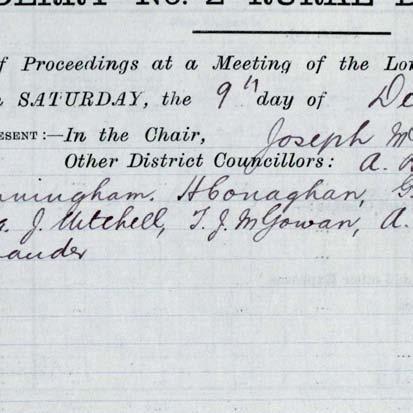 DERRY No. 2 RURAL D
f Proceedings at a Meeting of the Lon
SATURDAY, the 9th day of De
ESENT:—In the Chair, Joseph Mc
Other District Councillors: A. B
nningham. H Conaghan, G.
J. Mitchell, T. J. McGowan, A.
auder